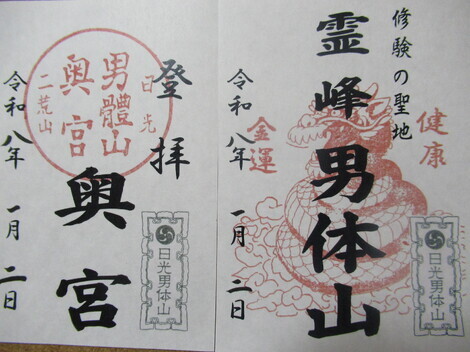 修験の聖地
霊峰男体山
健康
金運
令和八年 一月 二日
日光男体山
登拝
奥宮
日光
男體山
奥宮
二荒山
令和八年 一月 二日
日光男体山